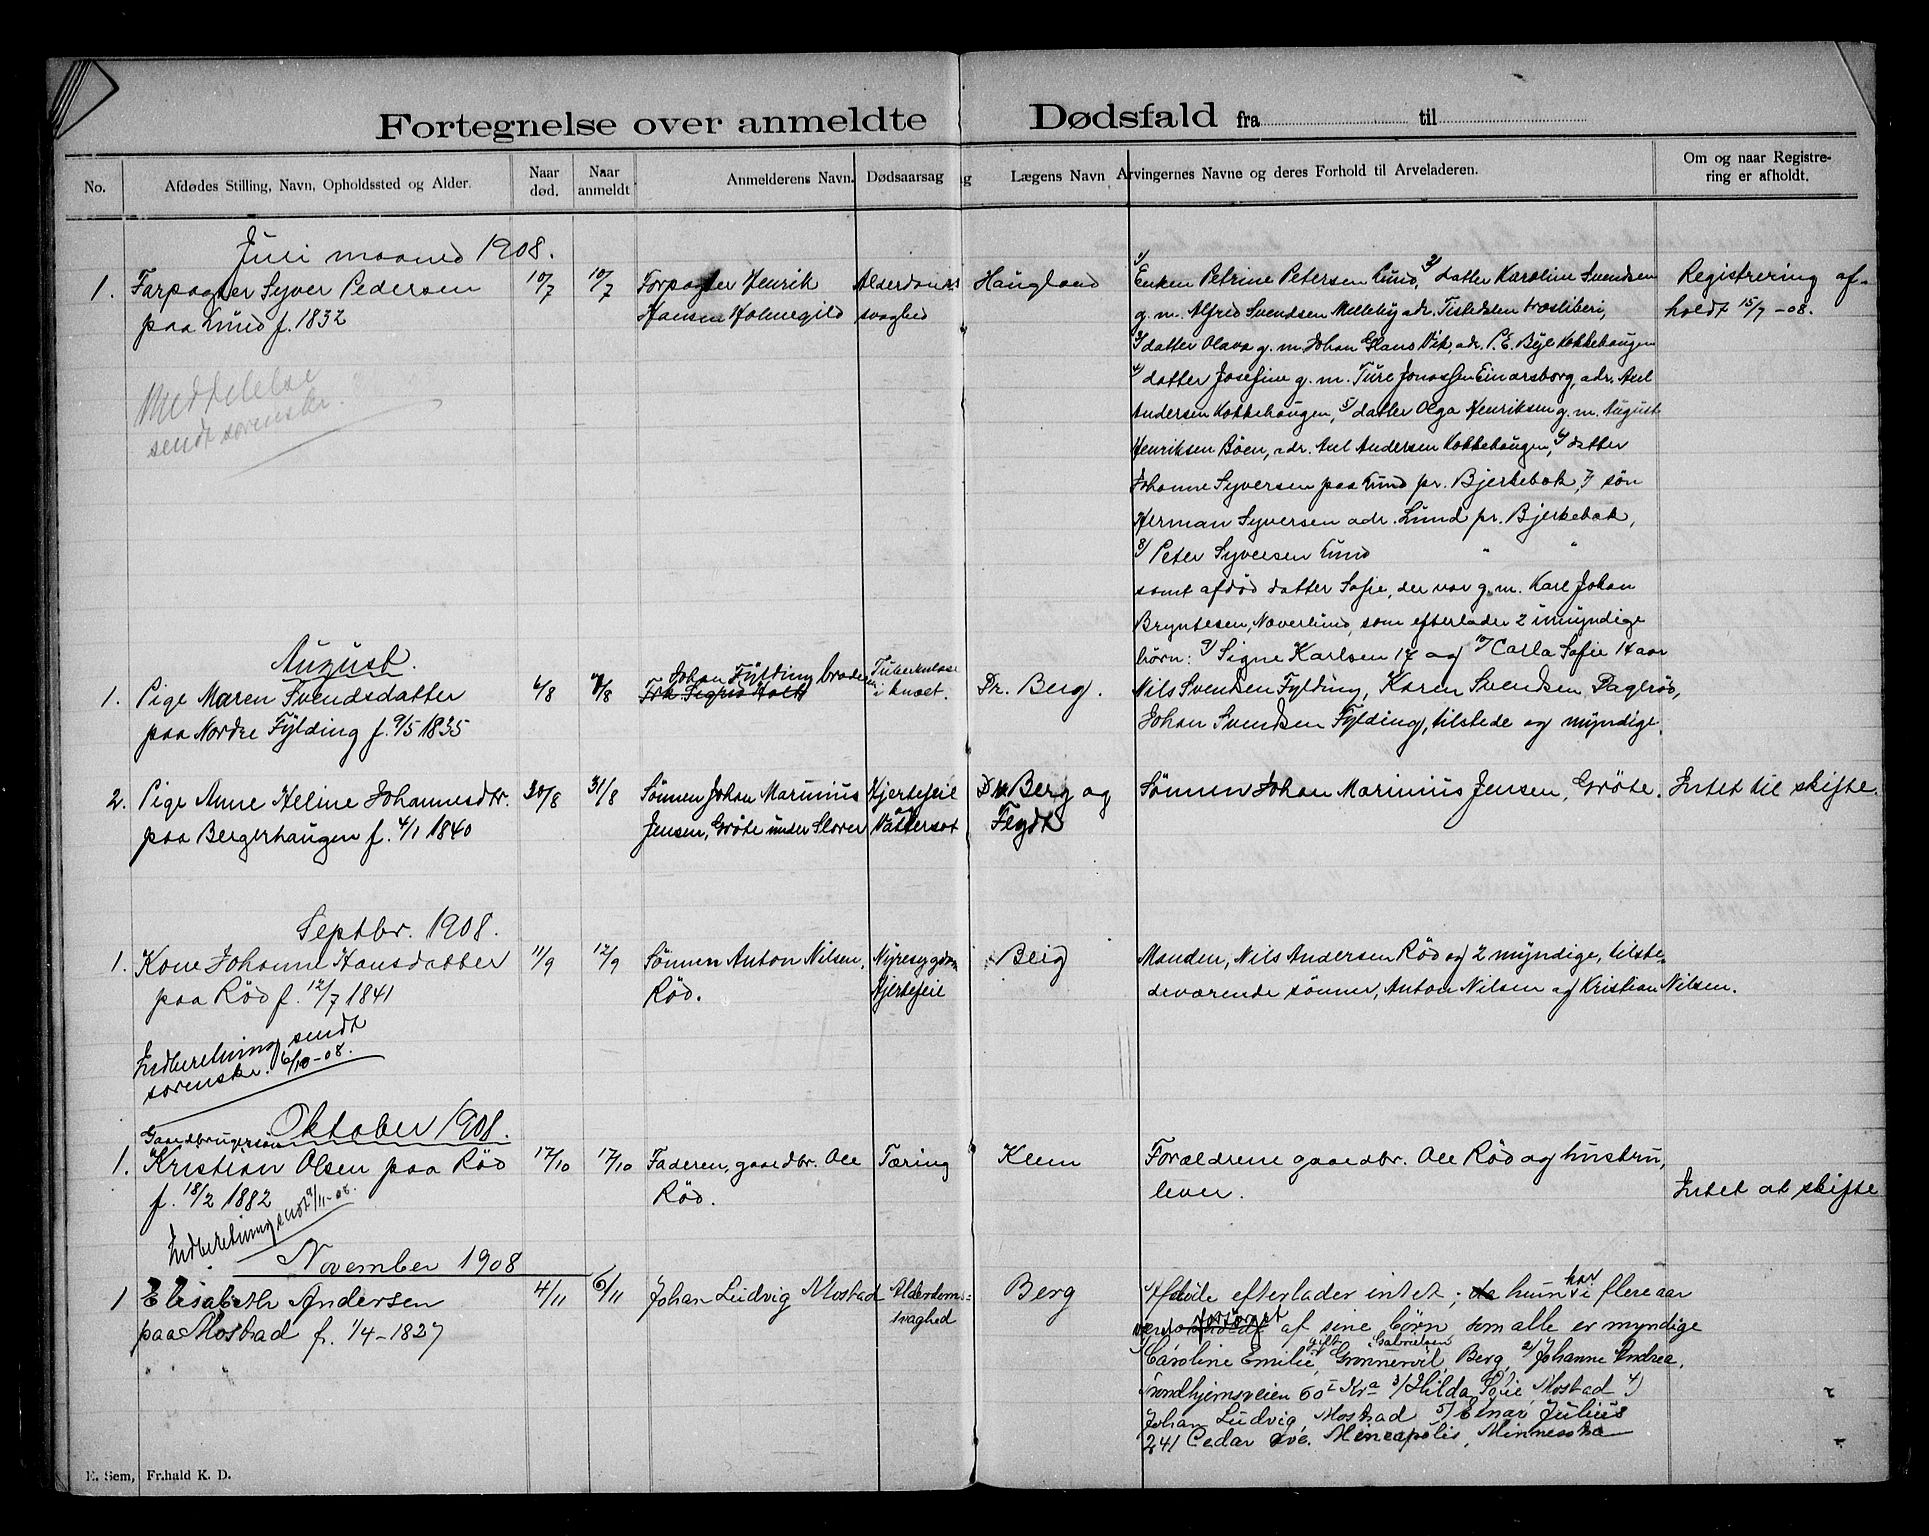 Fortegnelse over anmeldte Dødsfald fra til
No.
Afdødes Stilling, Navn, Opholdssted og Alder.
Naar død.
Naar anmeldt
Anmelderens Navn.
Dødsaarsag og
Lægens Navn
Arvingernes Navne og deres Forhold til Arveladeren.
Om og naar Registre-
ring er afholdt.
Juli maaned 1908.
1. Forpagter Syver Pedersen
paa Lund f. 1832
10/7
10/7
Forpagter Henrik
Hansen Holmegild
Alderdoms
svaghed
Haugland
1/ Enken Petrine Petersen Lund, 2/ datter Karoline Svendsen
g. m. Alfred Svendsen Melleby adr. Tisledalen
3/ datter Olava g. m. Johan Glans Vik, adr. P. E. Bye Kokkehaugen
4/ datter Josefine g. m. Ture Jonassen Einarsborg, adr. Axel
Andersen Kokkehaugen, 5/ datter Olga Henriksen g. m. August
Henriksen Böen, adr. Axel Andersen Kokkehaugen, 6/ datter
Johanne Syversen paa Lund pr. Bjerkebæk, 7/ søn
Herman Syversen adr. Lund pr. Bjerkebæk,
8/ Peter Syversen Lund " "
samt afdød datter Sofie, der var g. m. Karl Johan
Bryntesen, Næverlund, som efterlader 2 umyndige
børn: 9/ Signe Karlsen 17 og 10/ Carla Sofie 14 aar
Registrering af-
holdt 15/7 -08.
Meddelelse
sendt sorenskr.
August.
1. Pige Maren Svendsdatter
paa Nordre Fylding f. 9/5 1835
6/8
7/8
Johan Fylding broder
Frk. Sigrid Holt
Tuberkulose
i knæet.
Dr. Berg.
Nils Svendsen Fylding, Karen Svendsen Daglröd,
Johan Svendsen Fylding, tilstede og myndige.
2. Pige Anne Heline Johannesdtr.
paa Bergerhaugen f. 4/1 1840
30/8
31/8
Sönnen Johan Marinius
Jensen, Gröte under Slorer
Hjertefeil
Vattersot
Dr. Berg og
Feydt
Sönnen Johan Marinius Jensen, Gröte.
Intet til skifte.
Septbr. 1908.
1. Kone Johanne Hansdatter
paa Rød f. 12/7 1841
11/9
12/9
Sönnen Anton Nilsen,
Rød.
Nyresygdom
Hjertefeil
Berg
Manden, Nils Andersen Rød og 2 myndige, tilste-
deværende sönner, Anton Nilsen og Kristian Nilsen.
Indberetning sendt
sorenskr. 6/10-08.
Oktober 1908.
Gaardbrugersøn
1. Kristian Olsen paa Rød
f. 18/2 1882
17/10
17/10
Faderen, gaardbr. Ole
Rød.
Tæring
Klem
Forældrene gaardbr. Ole Rød og hustru,
lever.
Intet at skifte
Indberetning sendt 9/11-08.
November 1908
1 Elisabeth Andersen
paa Mostad f. 1/4-1827
4/11
6/11
Johan Ludvig Mostad
Alderdoms-
svaghed
Berg
Afdøde efterlader intet; da hun har i flere aar
været forsørget af sine børn som alle er myndige
1/ Caroline Emilie gift Gabrielsen Grønnervil, Berg, 2/ Johanne Andrea,
Trondhjemsveien 60 I Kra 3/ Hilda Sofie Mostad 4/
Johan Ludvig Mostad 5/ Einar Julius
241 Cedar Ave. Mineapolis, Minnesota
E. Sem, Fr.hald K. D.